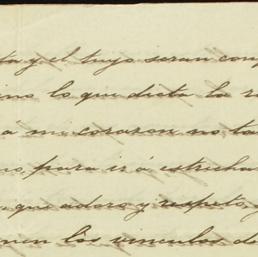 ta y el tuyo seran con
ino lo que dicta la r
a mi corazon no ta
no para ir á estrecha
que adoro y respeto,
nen los vinculos d